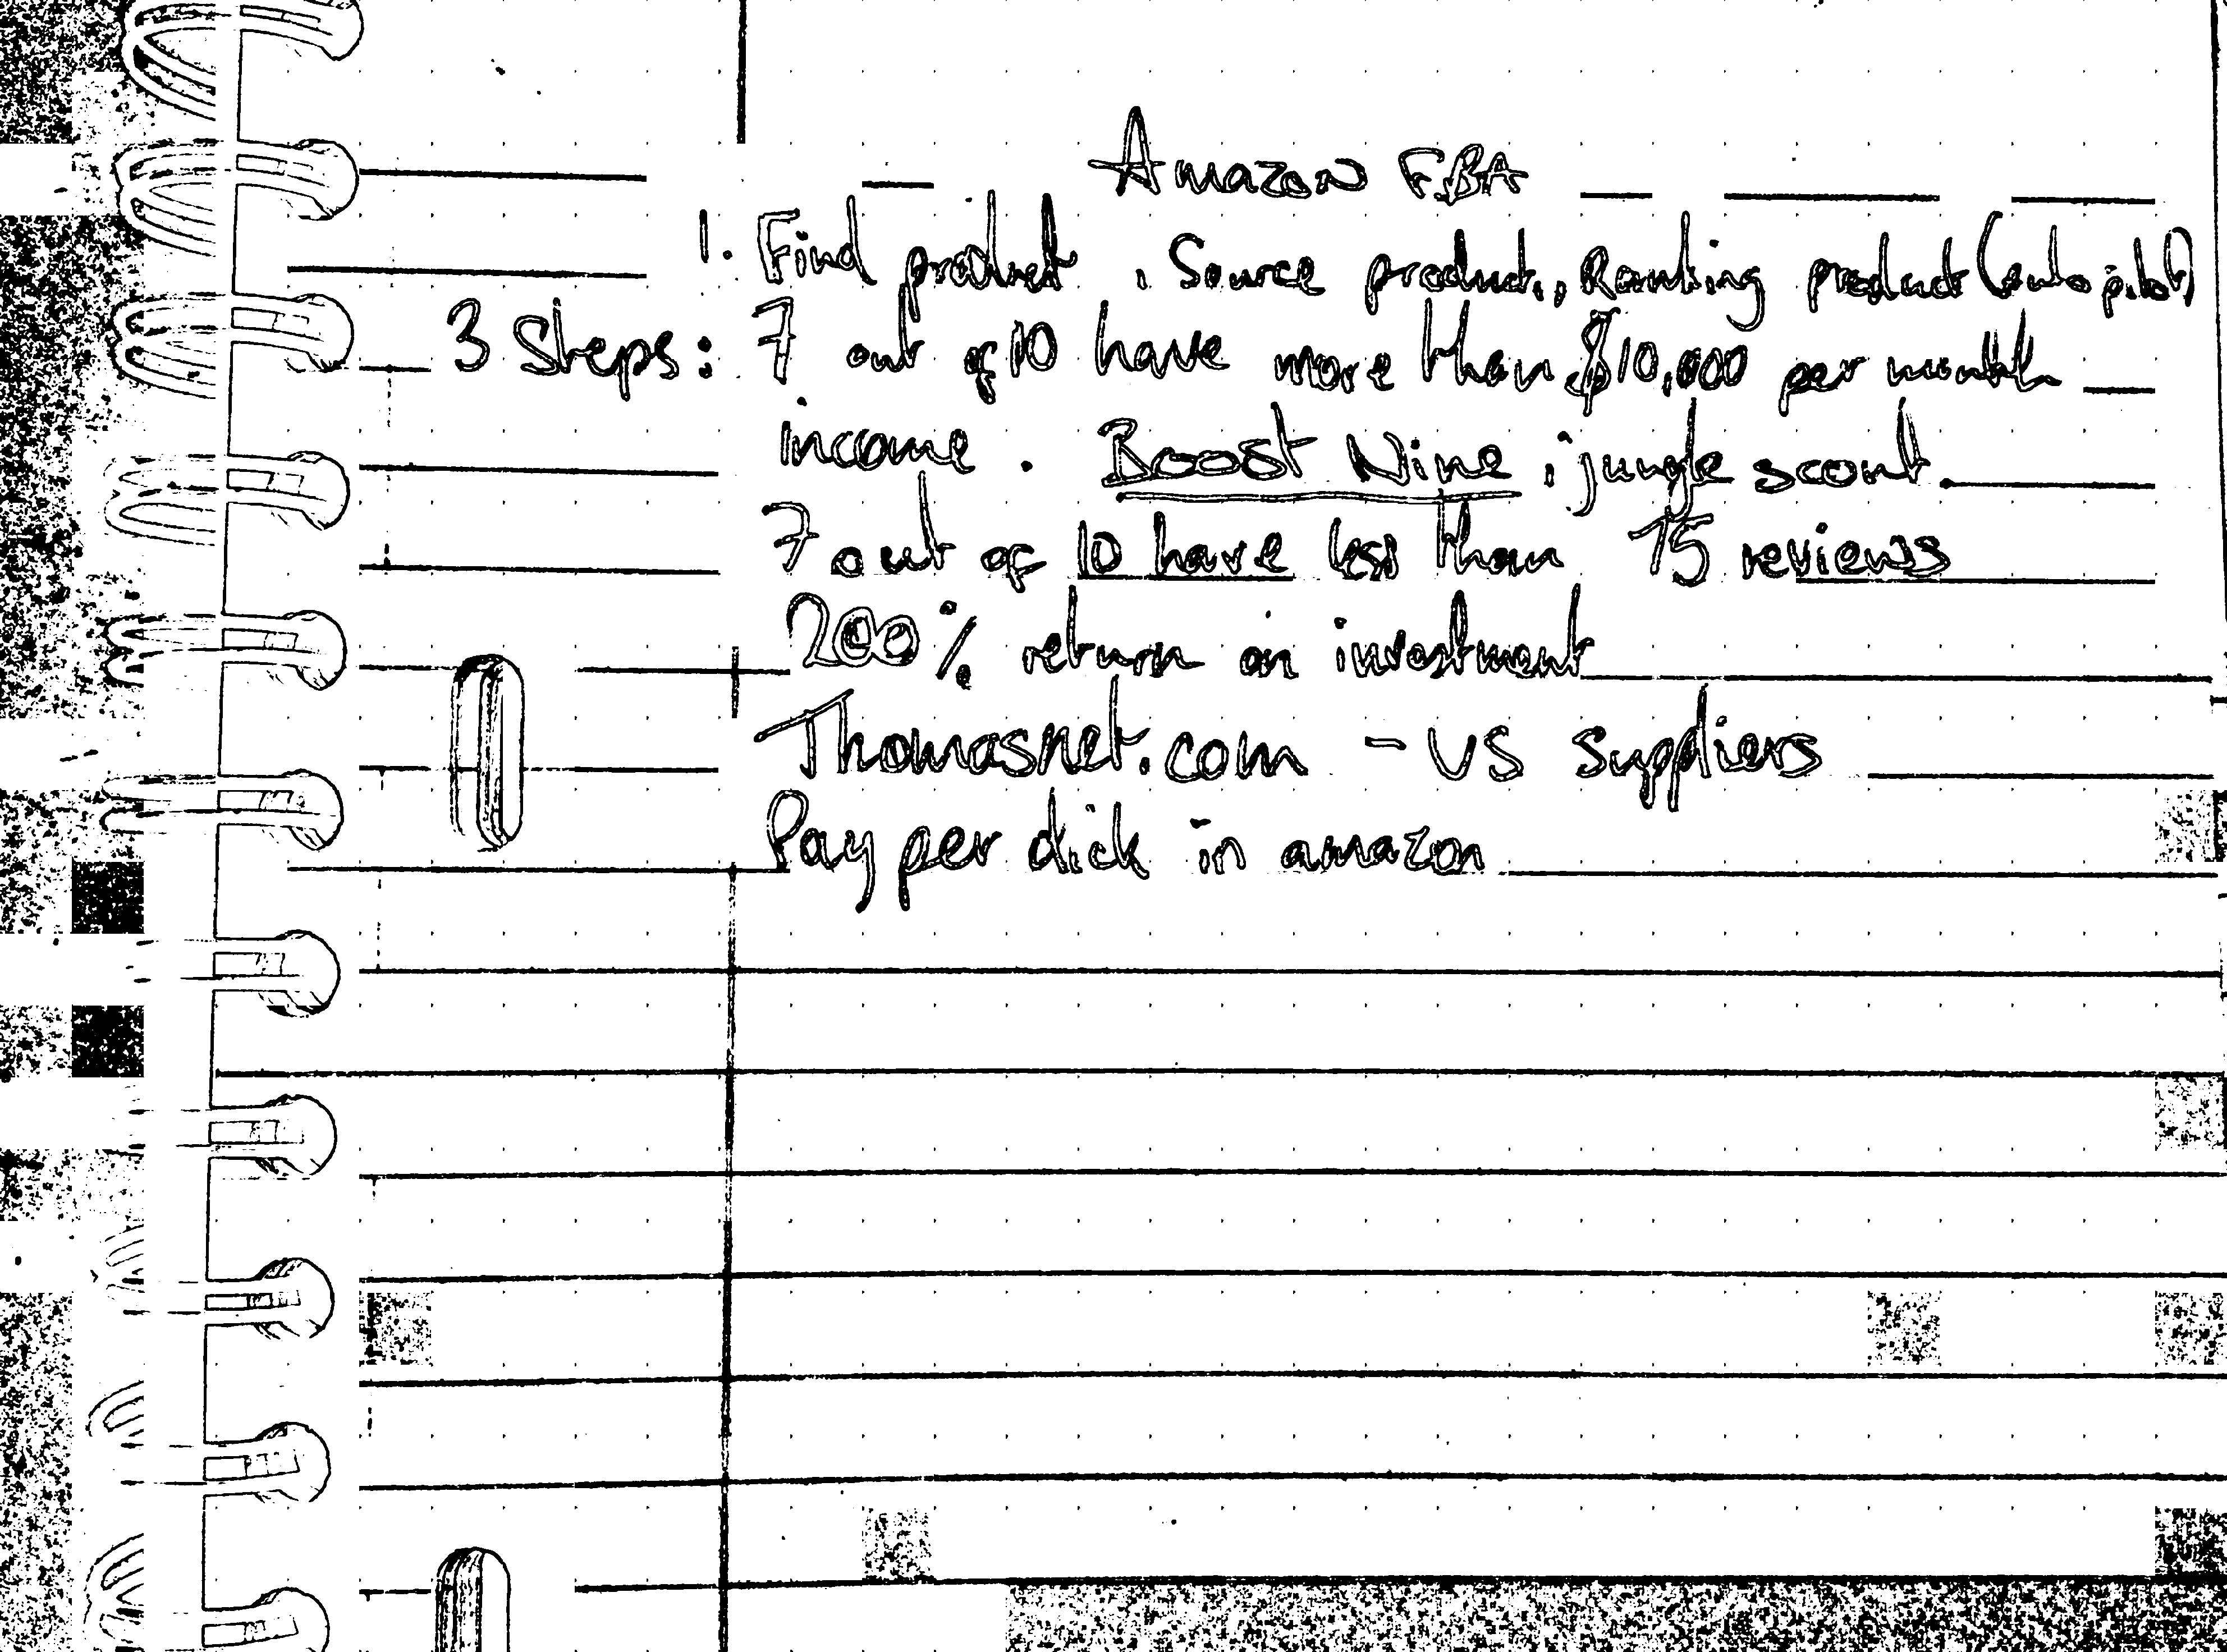 Amazon FBA
1. Find product, Source product, Ranking product (auto pilot)
3 Steps: 7 out of 10 have more than $10,000 per month
income. Boost Nine; jungle scout.
7 out of 10 have less than 75 reviews
200% return on investment
Thomasnet.com - US suppliers
Pay per click in amazon